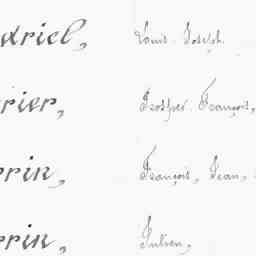 driel, Louis Joseph.
rier, Prosper François,
rrin, François, Jean,
rrin, Julien,